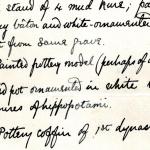 stand of a mud hare; pa
y bâton and white-ornamented
t from same grave.
Painted pottery model (perhaps of a
d pot ornamented in white
ures of hippopotami.
Pottery coffin of 1st dynas